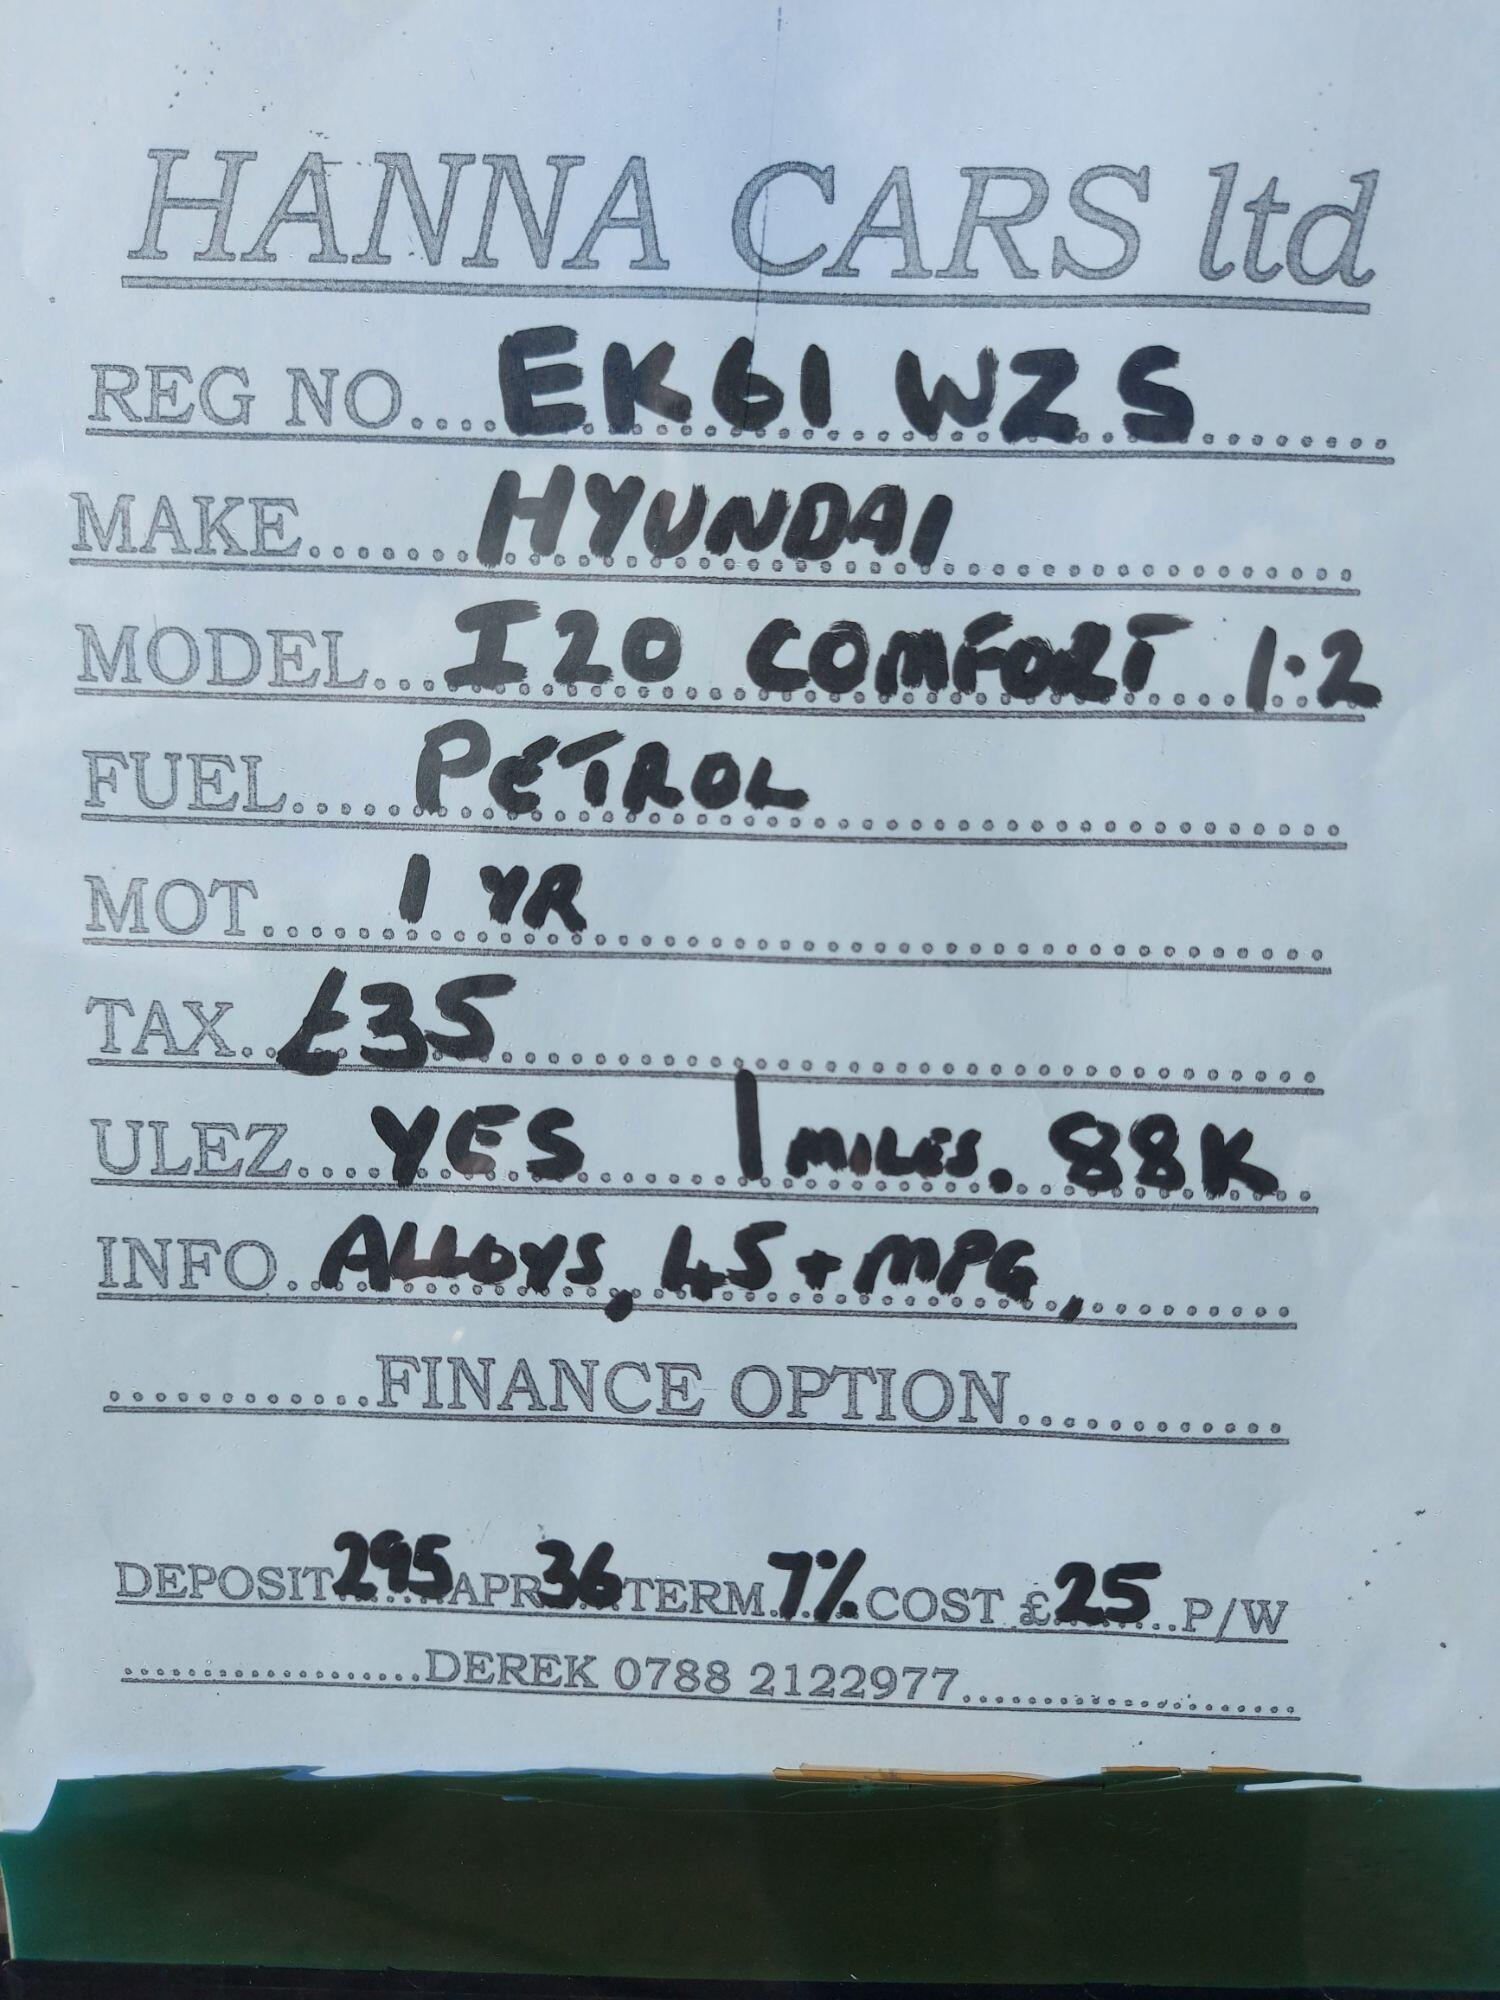 HANNA CARS ltd
REG NO....EK61 WZS........
MAKE.......HYUNDAI...............
MODEL...I20 COMFORT 1.2
FUEL.....PETROL.....................
MOT....1 YR..........................
TAX..£35..............................
ULEZ....YES | MILES. 88K
INFO..ALLOYS, 45+MPG,.........
............FINANCE OPTION............
DEPOSIT 295 APR 36 TERM 7% COST £25...P/W
..................DEREK 0788 2122977....................